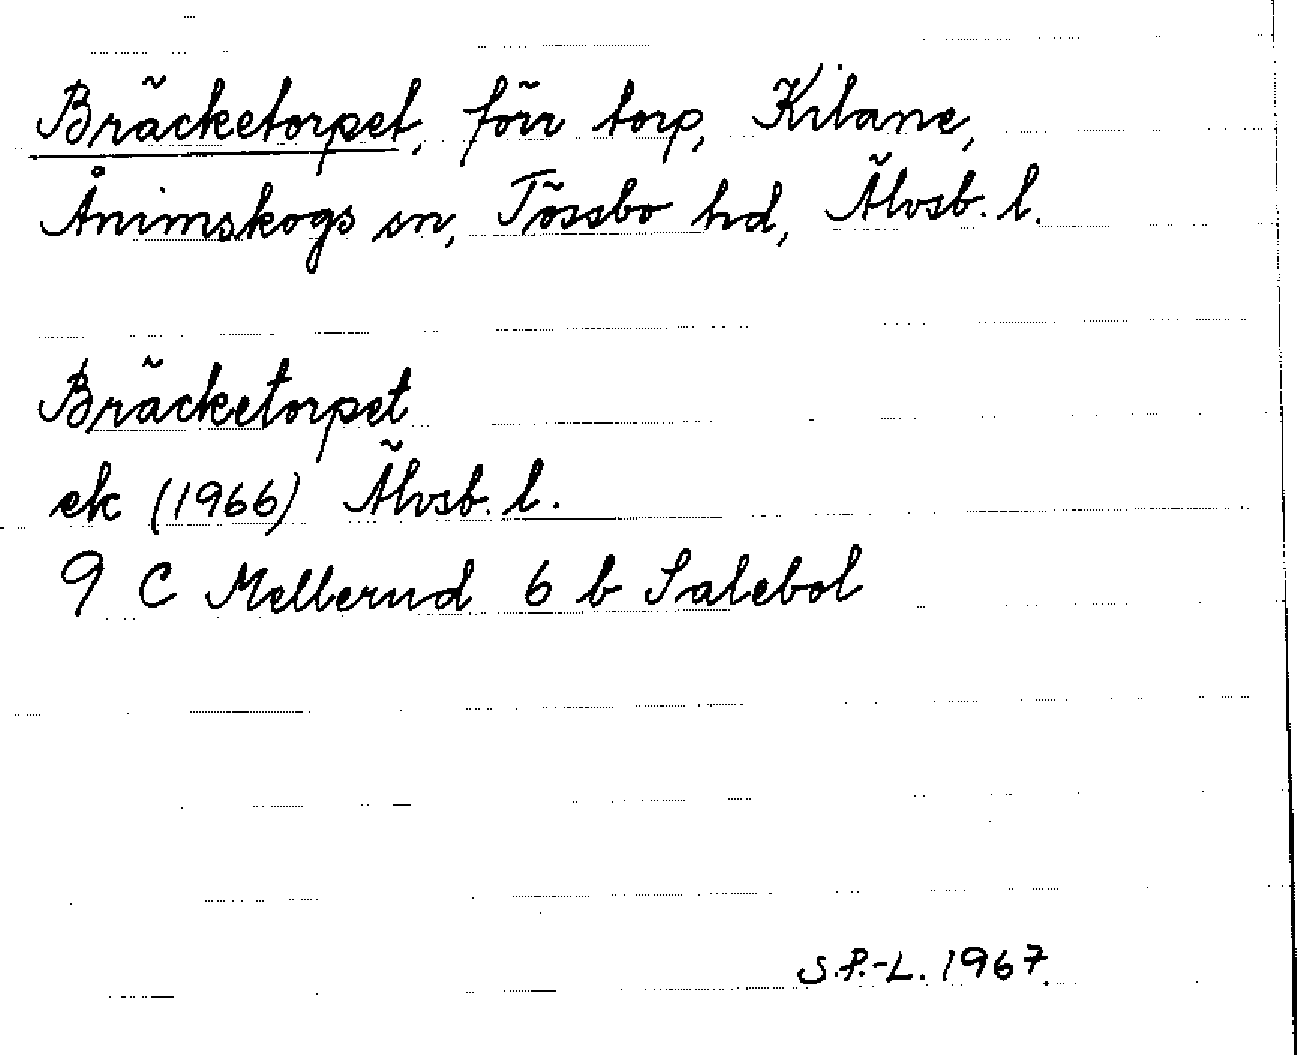 Bräcketorpet, förr torp, Kilane,
Ånimskogs sn, Tössbo hd, Älvsb. l.
Bräcketorpet
ek (1966) Älvsb. l.
9 C Mellerud 6 b Salebol
S.P.-L. 1967.